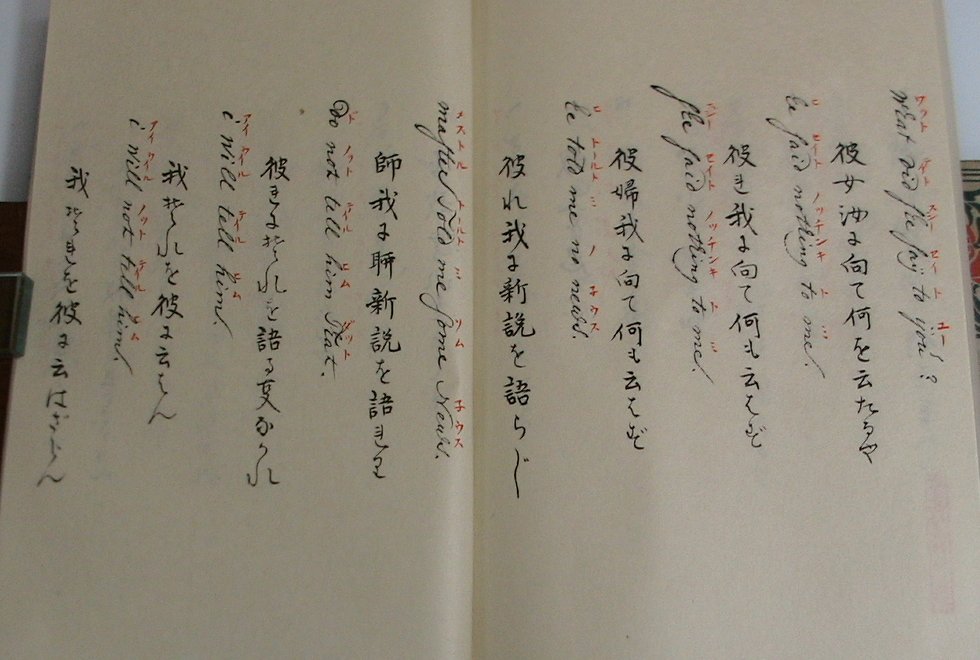 ワット ディト スシー セート ト ユー
What did ſhe ſaÿ to you?
彼女汝に向て何を云たるや
ヒ セイト ノッチンキ ト ミ
he ſaid nothing to me.
彼れ我に向て何も云はず
セイト ノッチンキ ト ミ
ſhe ſaid nothing to me.
彼婦我に向て何も云はず
ヒ トールト ミ ノ 子ウス
he told me no news.
彼れ我に新説を語らじ
メストル トルト ミ ソム 子ウス
maſter told me ſome News.
師我に聊新説を語れり
ド ノット テイル ヒム ダット
Do not tell him that.
彼れにそれを語る事なかれ
アイ ウイル テイル ヒム
i will tell him.
我それを彼に云はん
アイ ウイル ノット テル ヒム
i will not tell him.
我それを彼に云はざらん